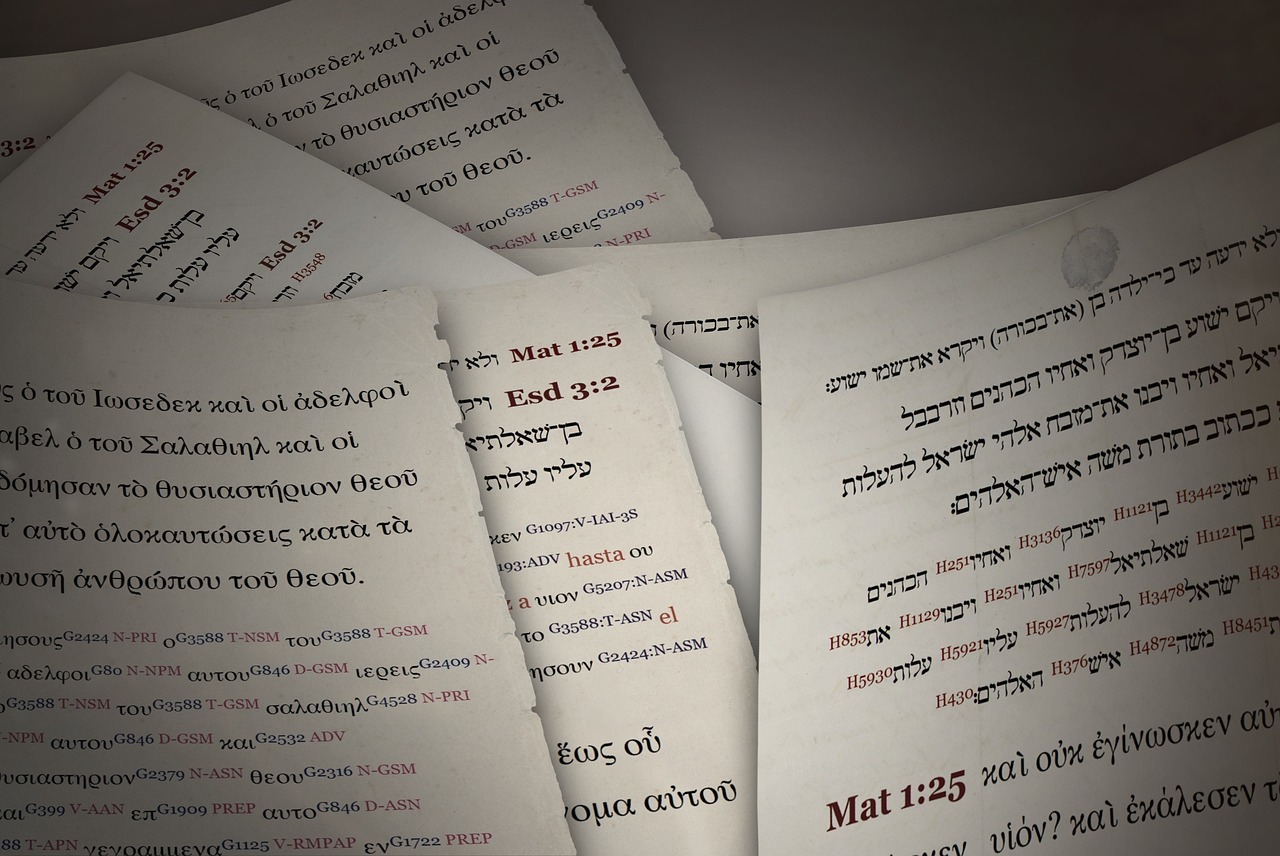 ὁ τοῦ Ιωσεδεκ καὶ οἱ
ὁ τοῦ Σαλαθιηλ καὶ οἱ
τὸ θυσιαστήριον θεοῦ
κατὰ τὰ
τοῦ θεοῦ.
τουG3588 T-GSM
D-GSM ιερειςG2409 N-
N-PRI
3:2
Mat 1:25 ולא ידעה עד
Esd 3:2 ויקם
בן־שאלתיאל
עליו עלות
Esd 3:2 ויקם
H3548
מזבח
ὁ τοῦ Ιωσεδεκ καὶ οἱ ἀδελφοὶ
ὁ τοῦ Σαλαθιηλ καὶ οἱ
τὸ θυσιαστήριον θεοῦ
αὐτὸ ὁλοκαυτώσεις κατὰ τὰ
ἀνθρώπου τοῦ θεοῦ.
G2424 N-PRI οG3588 T-NSM τουG3588 T-GSM
αδελφοιG80 N-NPM αυτουG846 D-GSM ιερειςG2409 N-
G3588 T-NSM τουG3588 T-GSM σαλαθιηλG4528 N-PRI
-NPM αυτουG846 D-GSM καιG2532 ADV
G2379 N-ASN θεουG2316 N-GSM
G399 V-AAN επG1909 PREP αυτοG846 D-ASN
88 T-APN γεγραμμεναG1125 V-RMPAP ενG1722 PREP
Mat 1:25 ולא
Esd 3:2
בן־שאלתיא
עליו עלות
κεν G1097:V-IAI-3S
193:ADV hasta ου
a υιον G5207:N-ASM
το G3588:T-ASN el
ησουν G2424:N-ASM
ἕως οὗ
αὐτοῦ
את־בכורה)
אחיו
ולא ידעה עד כי־ילדה בן (את־בכורה) ויקרא את־שמו ישוע:
ויקם ישוע בן־יוצדק ואחיו הכהנים וזרבבל
ואחיו ויבנו את־מזבח אלהי ישראל להעלות
ככתוב בתורת משה איש־האלהים:
ישועH3442 בןH1121 יוצדקH3136 ואחיוH251 הכהנים
בןH1121 שאלתיאלH7597 ואחיוH251 ויבנוH1129 אתH853
ישראלH3478 להעלותH5927 עליוH5921 עלותH5930
H8451 משהH4872 אישH376 האלהים:H430
Mat 1:25 καὶ οὐκ ἐγίνωσκεν
υἱόν? καὶ ἐκάλεσεν